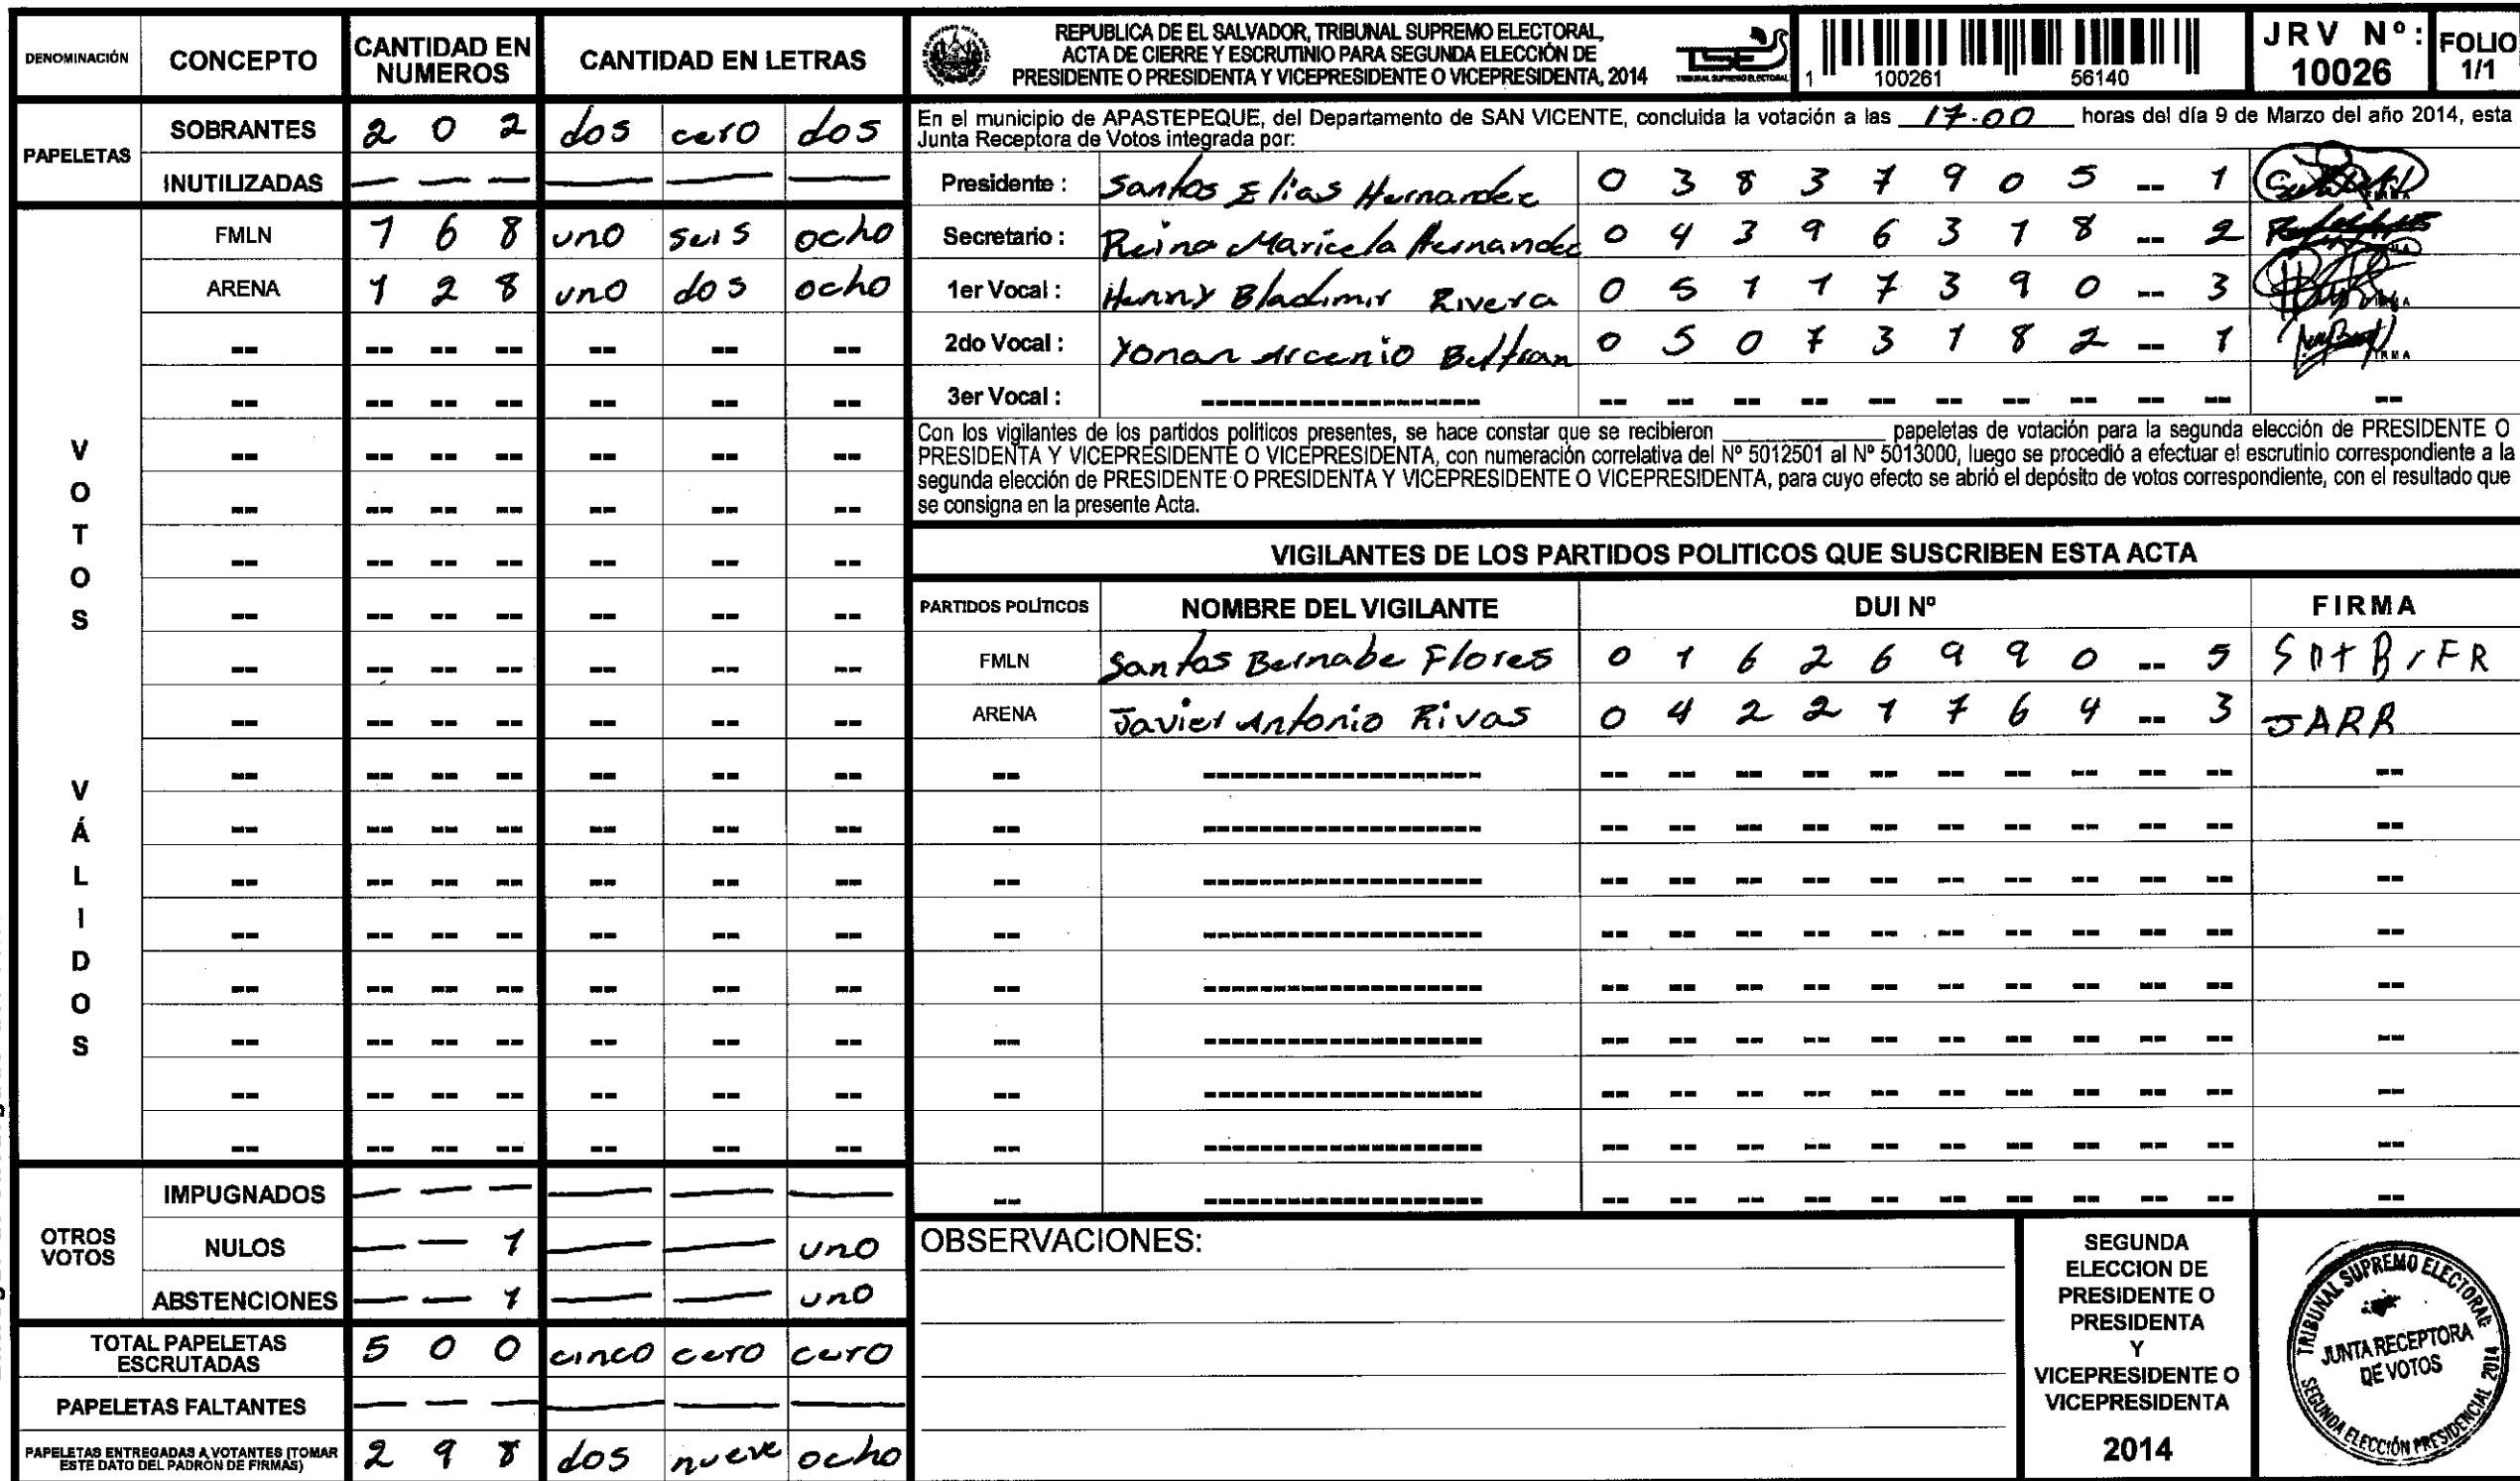 DENOMINACIÓN CONCEPTO CANTIDAD EN NUMEROS CANTIDAD EN LETRAS
PAPELETAS
SOBRANTES 2 0 2 dos cero dos
INUTILIZADAS — — — — — —
VOTOS VÁLIDOS
FMLN 1 6 8 uno seis ocho
ARENA 1 2 8 uno dos ocho
OTROS VOTOS
IMPUGNADOS — — — — — —
NULOS — — 1 — — uno
ABSTENCIONES — — 1 — — uno
TOTAL PAPELETAS ESCRUTADAS 5 0 0 cinco cero cero
PAPELETAS FALTANTES — — — — — —
PAPELETAS ENTREGADAS A VOTANTES (TOMAR ESTE DATO DEL PADRON DE FIRMAS) 2 9 8 dos nueve ocho
REPUBLICA DE EL SALVADOR, TRIBUNAL SUPREMO ELECTORAL,
ACTA DE CIERRE Y ESCRUTINIO PARA SEGUNDA ELECCIÓN DE
PRESIDENTE O PRESIDENTA Y VICEPRESIDENTE O VICEPRESIDENTA, 2014
TRIBUNAL SUPREMO ELECTORAL
1 100261 56140
JRV Nº: 10026
FOLIO 1/1
En el municipio de APASTEPEQUE, del Departamento de SAN VICENTE, concluida la votación a las 17:00 horas del día 9 de Marzo del año 2014, esta
Junta Receptora de Votos integrada por:
Presidente : Santos Elias Hernandez 0 3 8 3 7 9 0 5 -- 1
Secretario : Reina Maricela Hernandez 0 4 3 9 6 3 1 8 -- 2
1er Vocal : Henny Bladimir Rivera 0 5 1 1 7 3 9 0 -- 3
2do Vocal : Yonan Arcenio Beltran 0 5 0 7 3 1 8 2 -- 1
3er Vocal : --------------------
Con los vigilantes de los partidos políticos presentes, se hace constar que se recibieron ____________ papeletas de votación para la segunda elección de PRESIDENTE O
PRESIDENTA Y VICEPRESIDENTE O VICEPRESIDENTA, con numeración correlativa del Nº 5012501 al Nº 5013000, luego se procedió a efectuar el escrutinio correspondiente a la
segunda elección de PRESIDENTE O PRESIDENTA Y VICEPRESIDENTE O VICEPRESIDENTA, para cuyo efecto se abrió el depósito de votos correspondiente, con el resultado que
se consigna en la presente Acta.
VIGILANTES DE LOS PARTIDOS POLITICOS QUE SUSCRIBEN ESTA ACTA
PARTIDOS POLÍTICOS NOMBRE DEL VIGILANTE DUI Nº FIRMA
FMLN Santos Bernabe Flores 0 1 6 2 6 9 9 0 -- 5
ARENA Javier Antonio Rivas 0 4 2 2 1 7 6 4 -- 3 JARR
OBSERVACIONES:
SEGUNDA
ELECCION DE
PRESIDENTE O
PRESIDENTA
Y
VICEPRESIDENTE O
VICEPRESIDENTA
2014
TRIBUNAL SUPREMO ELECTORAL
JUNTA RECEPTORA
DE VOTOS
SEGUNDA ELECCIÓN PRESIDENCIAL 2014